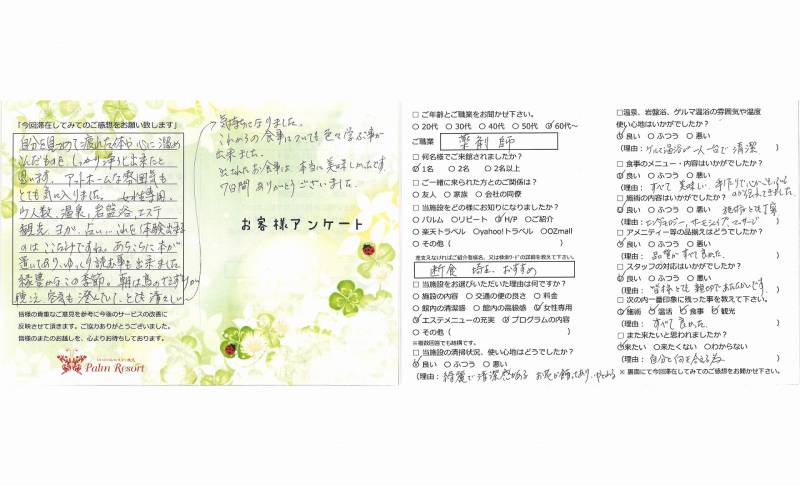 「今回滞在してみてのご感想をお願い致します」
自分を見つめて疲れた体や心に溜め
込んだものをしっかり浄化出来たと
思います。アットホームな雰囲気も
とても気に入りました。女性専用、
少人数、温泉、岩盤浴、エステ
観光、ヨガ、占い…これを体験出来る
のはここだけですね。あちこちに本が
置いてあり、ゆっくり読む事も出来ました。
緑豊かなこの季節。朝は鳥のさえずりが
聴こえ、空気も澄んでいて、とても清々しい
気持ちになりました。
これからの食事についても色々学ぶ事が
出来ました。
出されたお食事は、本当に美味しかったです。
7日間ありがとうございました。
お客様アンケート
皆様の貴重なご意見を参考に今後のサービスの改善に
反映させて頂きます。ご協力ありがとうございました。
皆様のまたのお越しを、心よりお待ちしております。
Palm Resort
□ ご年齢とご職業をお聞かせ下さい。
○20代 ○30代 ○40代 ○50代 ☑60代～
ご職業 薬剤師
□ 何名様でご来館されましたか？
☑1名 ○2名 ○2名以上
□ ご一緒に来られた方とのご関係は？
○友人 ○家族 ○会社の同僚
□ 当施設をどの様にお知りになりましたか？
○パルム ○リピート ☑H/P ○ご紹介
○楽天トラベル ○yahoo!トラベル ○OZmall
○その他（ ）
差支えなければご紹介者様名、又は検索ワードの詳細を教えて下さい。
断食 埼玉 おすすめ
□ 当施設をお選びいただいた理由は何ですか？
○施設の内容 ○交通の便の良さ ○料金
○館内の清潔感 ○館内の高級感 ☑女性専用
☑エステメニューの充実 ☑プログラムの内容
○その他（ ）
※複数回答でも結構です。
□ 当施設の清掃状況、使い心地はどうでしたか？
☑良い ○ふつう ○悪い
（理由：綺麗で清潔感がある お花が飾ってあり、
□温泉、岩盤浴、ゲルマ温浴の雰囲気や温度
使い心地はいかがでしたか？
☑良い ○ふつう ○悪い
（理由：ゲルマ温浴が一人一台で清潔
□ 食事のメニュー・内容はいかがでしたか？
☑良い ○ふつう ○悪い
（理由：すべて美味しい。手作りで心がこもっている
のが伝わってきました。
□ 施術の内容はいかがでしたか？
☑良い ○ふつう ○悪い 施術も丁寧
（理由：
□ アメニティー等の品揃えはどうでしたか？
☑良い ○ふつう ○悪い
（理由：品質がすべて良かった。 ）
□ スタッフの対応はいかがでしたか？
☑良い ○ふつう ○悪い
（理由：皆様とても親切であたたかいです。
□ 次の内一番印象に残った事を教えて下さい。
☑施術 ☑温活 ☑食事 ☑観光
（理由：すべて良かった。 ）
□ また来たいと思われましたか？
☑来たい ○来たくない ○わからない
（理由：自分と向き合える為 ）
※ 裏面にて今回滞在してみてのご感想をお聞かせ下さい。